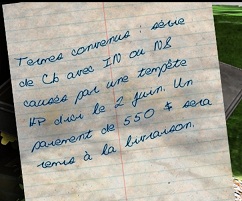 Termes convenus : série
de Cb avec IN ou NS
causés par une tempête
KP d'ici le 2 juin. Un
paiement de 550 $ sera
remis à la livraison.